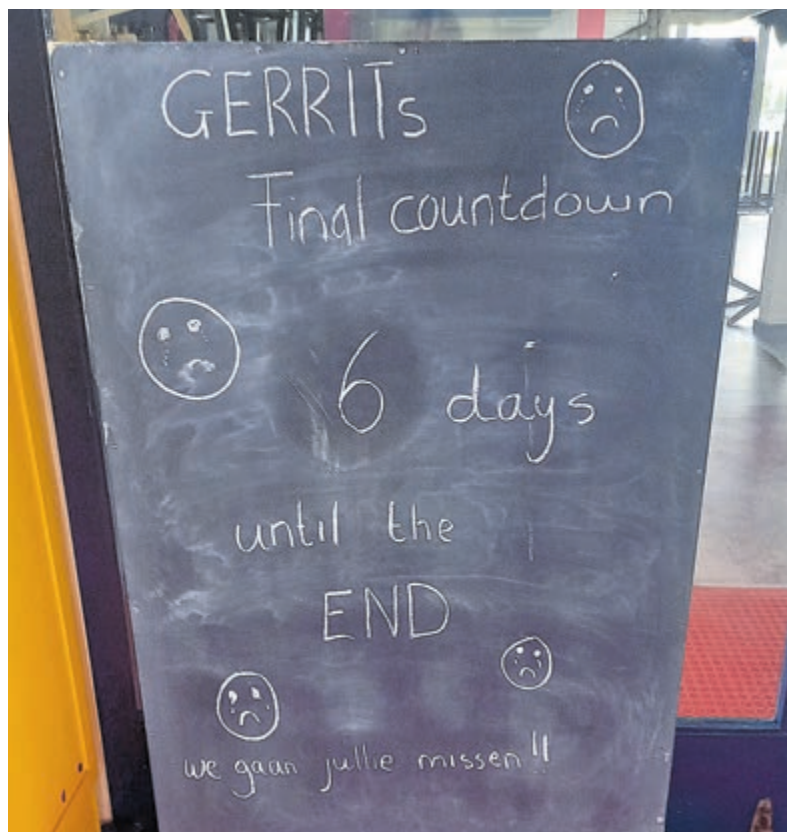 GERRITs
Final countdown
6 days
until the
END
we gaan jullie missen!!